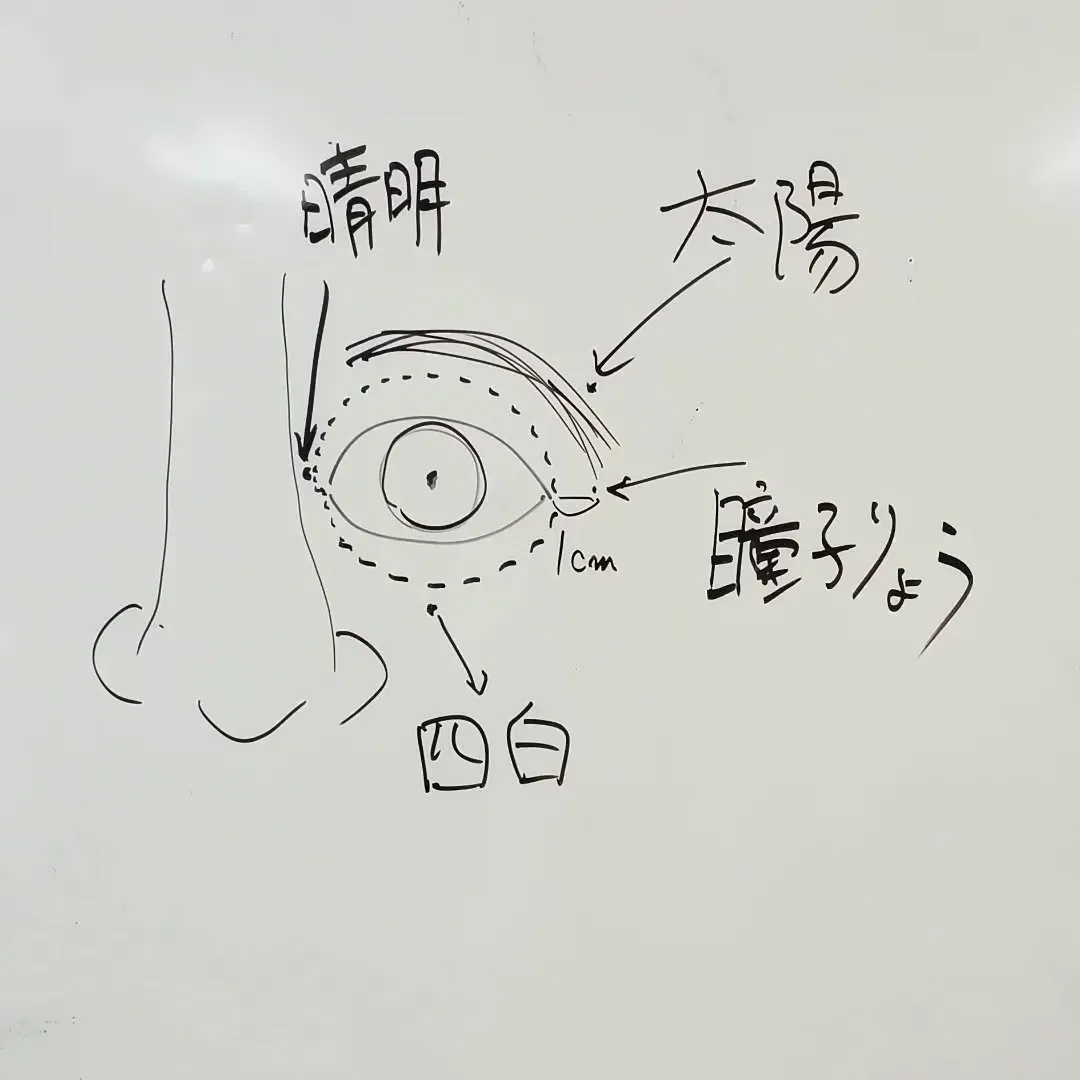 晴明
太陽
瞳子りょう
1cm
四白